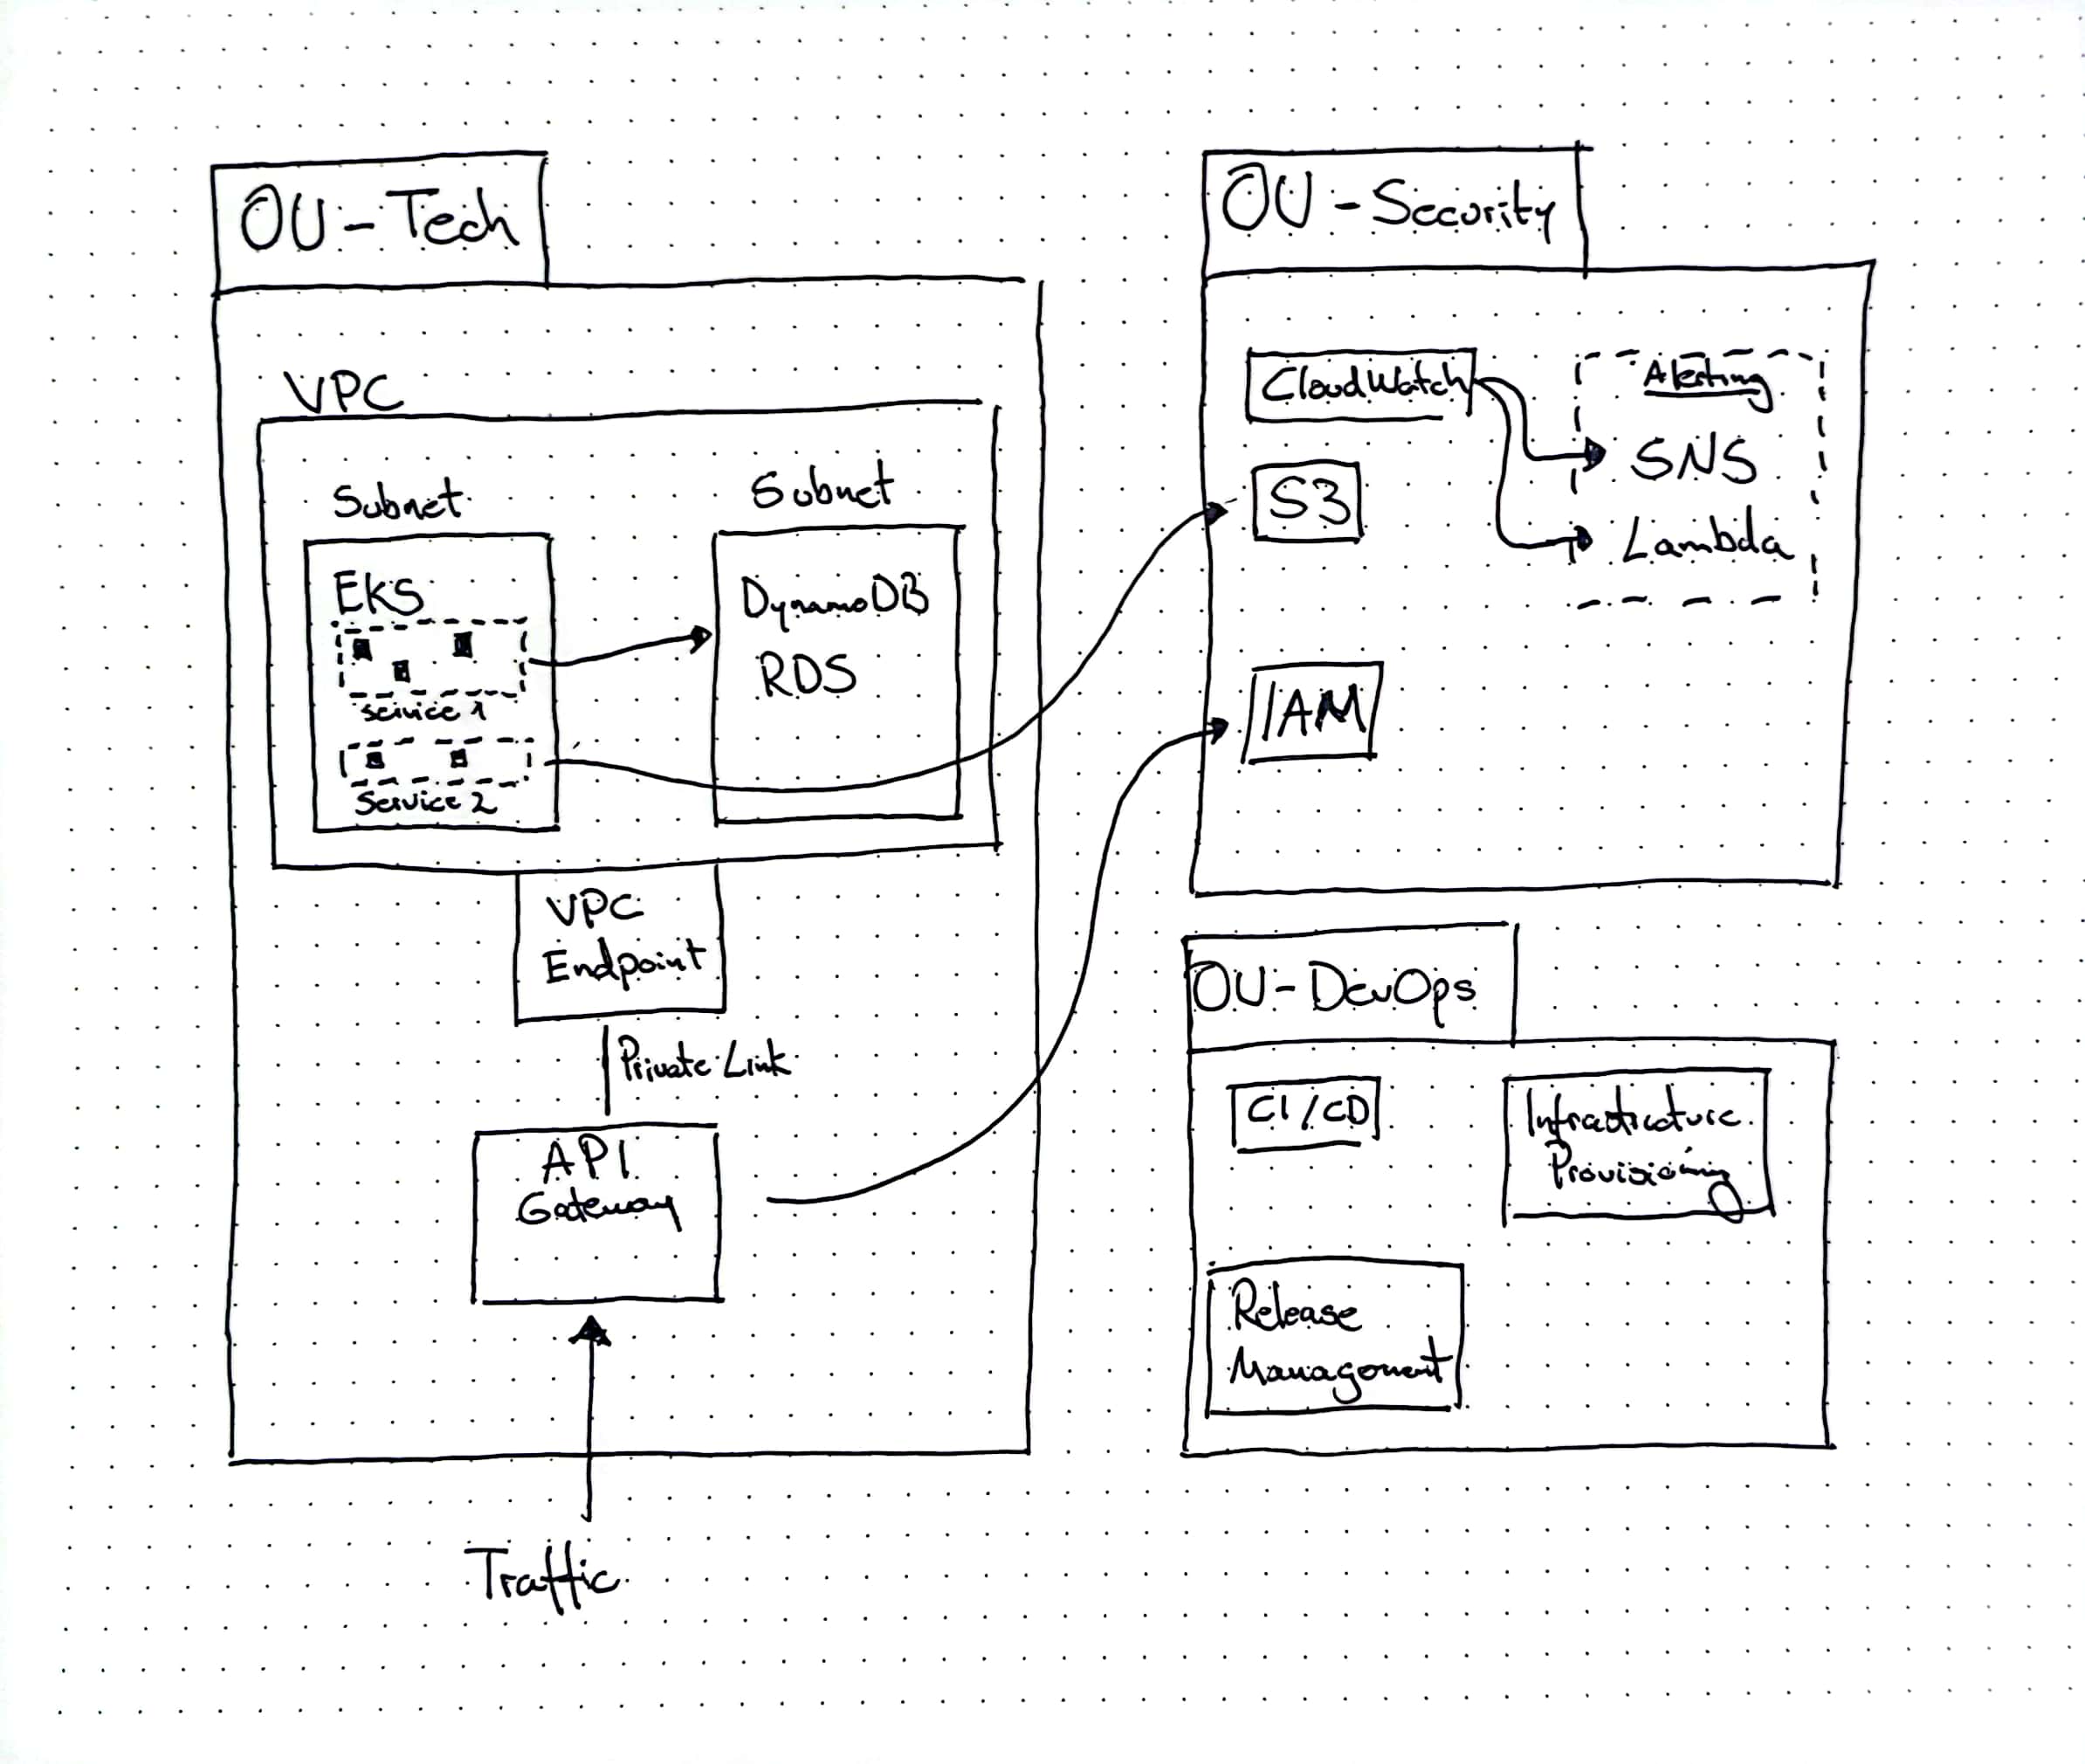 OU-Tech
VPC
Subnet
EKS
Service 1
Service 2
Subnet
DynamoDB
RDS
VPC
Endpoint
Private Link
API
Gateway
Traffic
OU-Security
CloudWatch
S3
IAM
Alerting
SNS
Lambda
OU-DevOps
CI/CD
Infrastructure
Provisioning
Release
Management